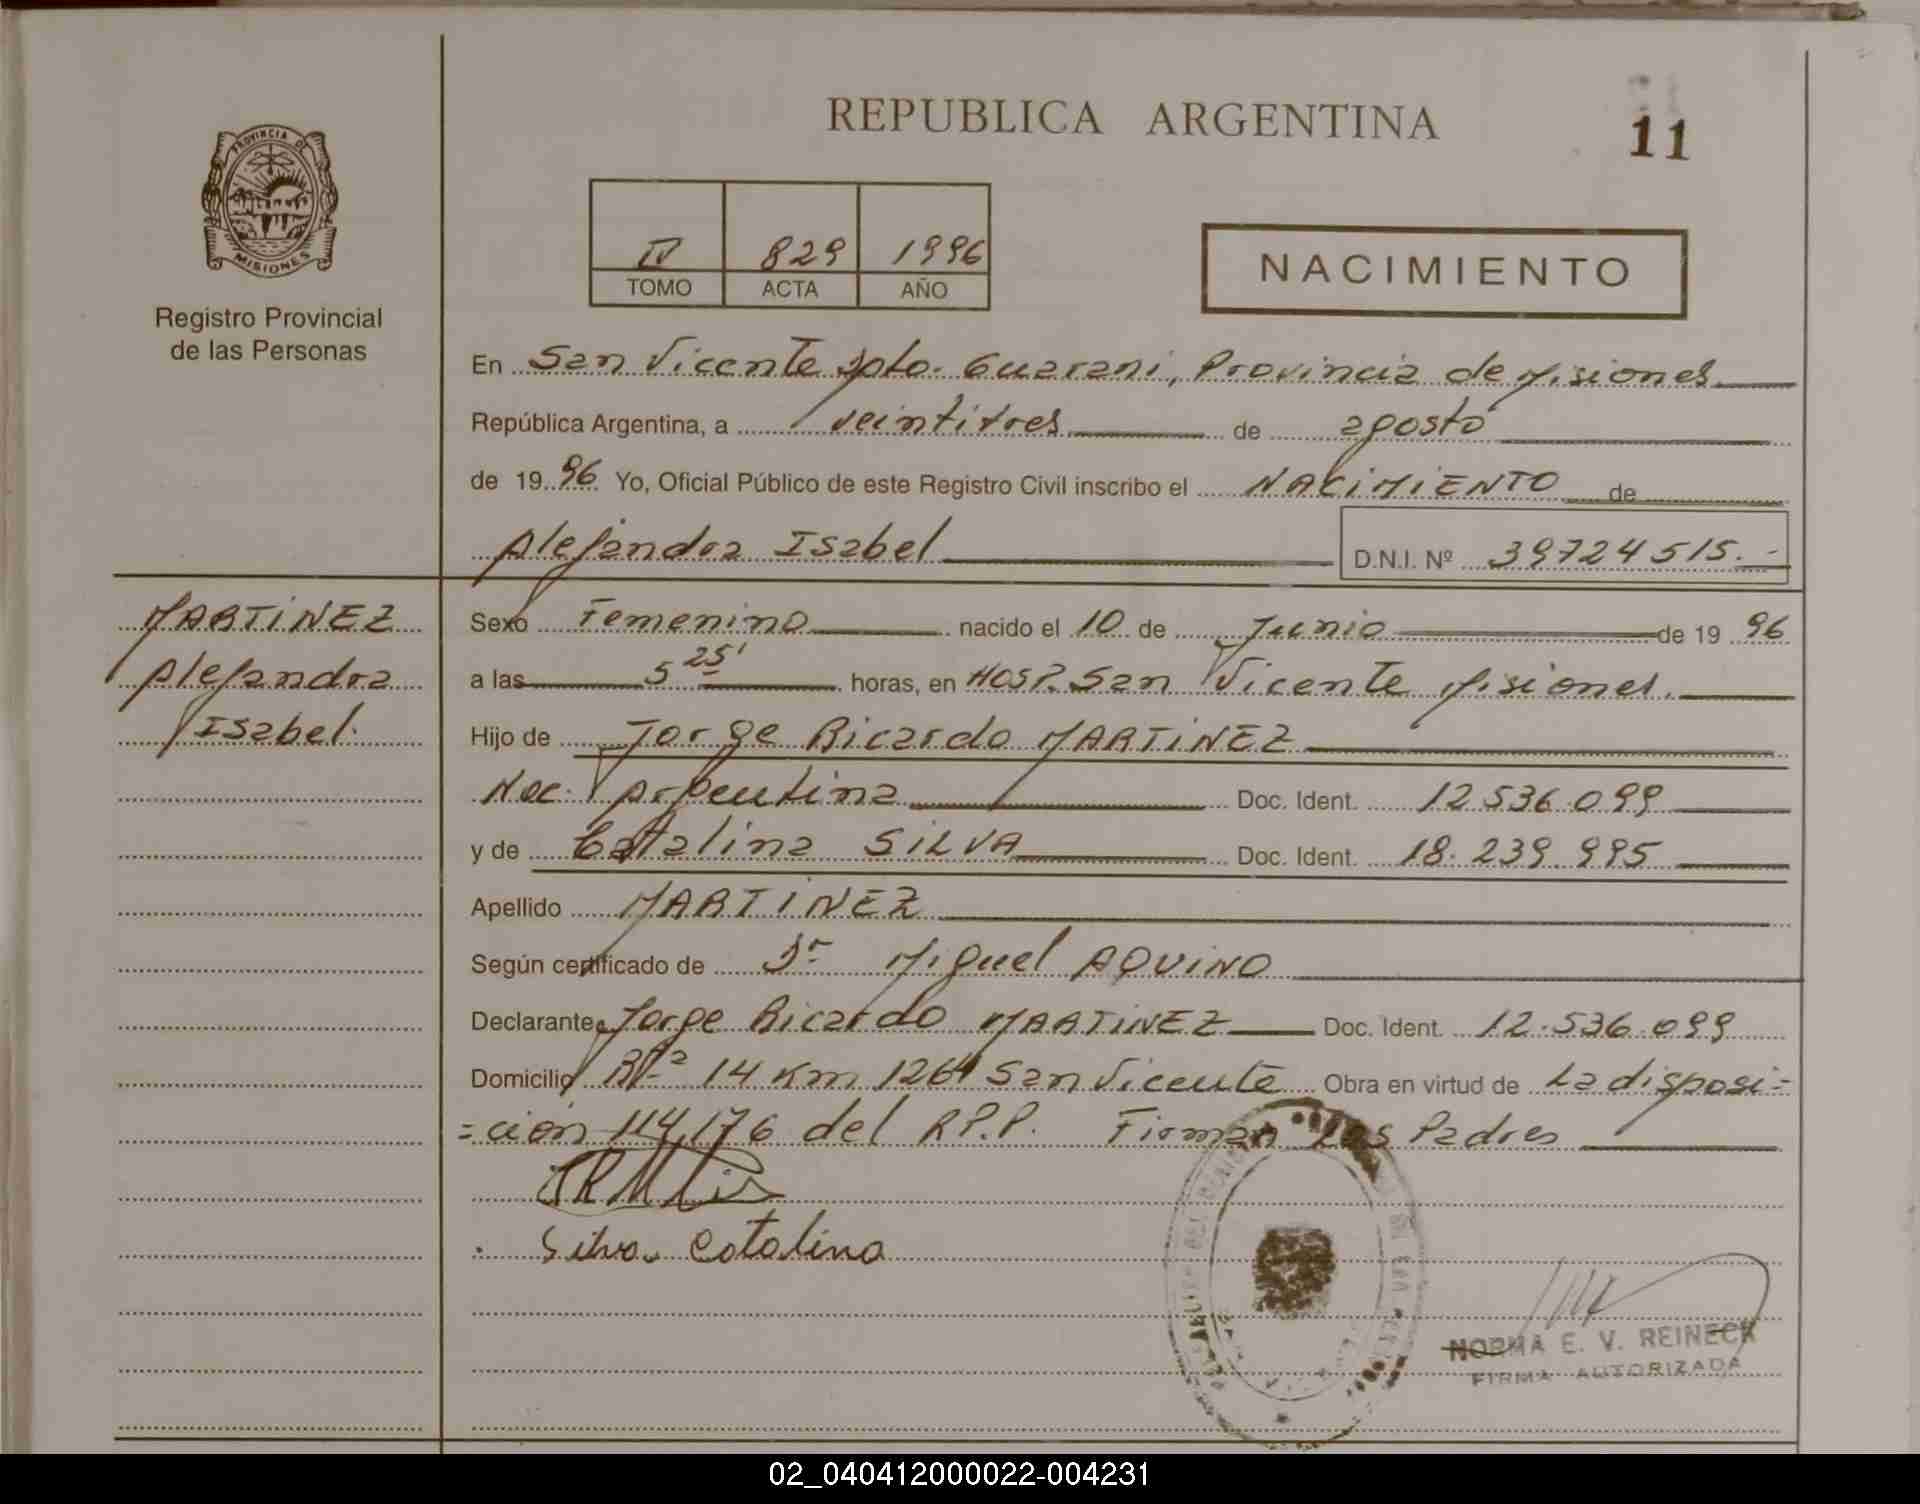 REPUBLICA ARGENTINA
11
PROVINCIA DE
MISIONES
Registro Provincial
de las Personas
IV 829 1996
TOMO ACTA AÑO
NACIMIENTO
En San Vicente Dpto. Guarani, Provincia de Misiones
República Argentina, a veintitres de agosto
de 1996 Yo, Oficial Público de este Registro Civil inscribo el NACIMIENTO de
Alejandra Isabel D.N.I. Nº 39724515.-
MARTINEZ
Alejandra
Isabel.
Sexo Femenino nacido el 10 de Junio de 1996
a las 5 25' horas, en HOSP. San Vicente Misiones.
Hijo de Jorge Ricardo MARTINEZ
Nac. Argentina Doc. Ident. 12536.099
y de Catalina SILVA Doc. Ident. 18.239.995
Apellido MARTINEZ
Según certificado de Dr Miguel AQUINO
Declarante Jorge Ricardo MARTINEZ Doc. Ident. 12.536.099
Domicilio 14 Km 1264 San Vicente Obra en virtud de La disposi=
=ción 114/176 del R.P.P. Firman Los Padres
Silva Catalina
NORMA E. V. REINECK
FIRMA AUTORIZADA
02_040412000022-004231